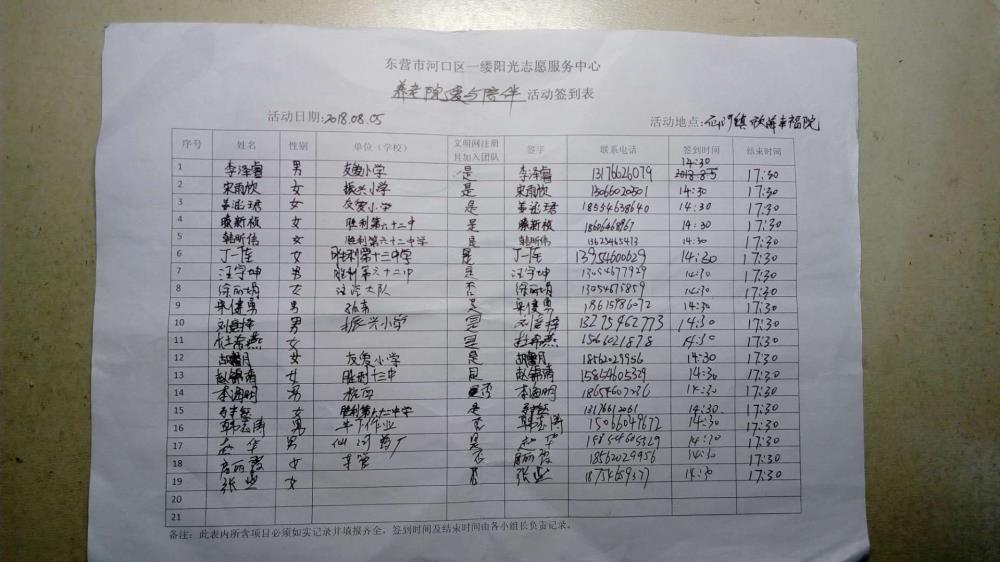 东营市河口区一缕阳光志愿服务中心
养老院爱与陪伴 活动签到表
活动日期:2018.08.05 活动地点: 幸福院
序号 姓名 性别 单位（学校） 文明网注册且加入团队 签字 联系电话 签到时间 结束时间
1 李泽睿 男 友爱小学 是 李泽睿 13176626079 14:30 2018-8-5 17:30
2 宋雨欣 女 振兴小学 是 宋雨欣 14:30 17:30
3 女 友爱小学 是 18554638640 14:30 17:30
4 滕新枝 女 胜利第六十二中 是 滕新枝 18606468967 14:30 17:30
5 韩昕伟 女 胜利第六十二中学 是 韩昕伟 13623465473 14:30 17:30
6 丁一 女 胜利第十三中学 是 丁一 13954600629 14:30 17:30
7 汪宇坤 男 胜利第六十二中 是 汪宇坤 13054677929 14:30 17:30
8 徐丽娟 女 否 徐丽娟 13054675859 14:30 17:30
9 男 是 18615986072 14:30 17:30
10 男 振兴小学 是 13275462773 14:30 17:30
11 杜希燕 女 是 杜希燕 14:30 17:30
12 女 友爱小学 是 18562029956 14:30 17:30
13 赵锦涛 女 胜利十三中 是 赵锦涛 15854605329 14:30 17:30
14 李海明 男 否 李海明 14:30 17:30
15 女 胜利第六十二中学 是 13176612061 14:30 17:30
16 韩宏涛 男 井下作业 否 韩宏涛 15066049672 14:30 17:30
17 赵华 男 仙河药厂 是 赵华 15854605329 14:30 17:30
18 房丽霞 女 否 房丽霞 18562029956 14:30 17:30
19 张 女 否 张 18754659377 14:30 17:30
20
21
备注：此表内所含项目必须如实记录并填报齐全，签到时间及结束时间由各小组长负责记录。